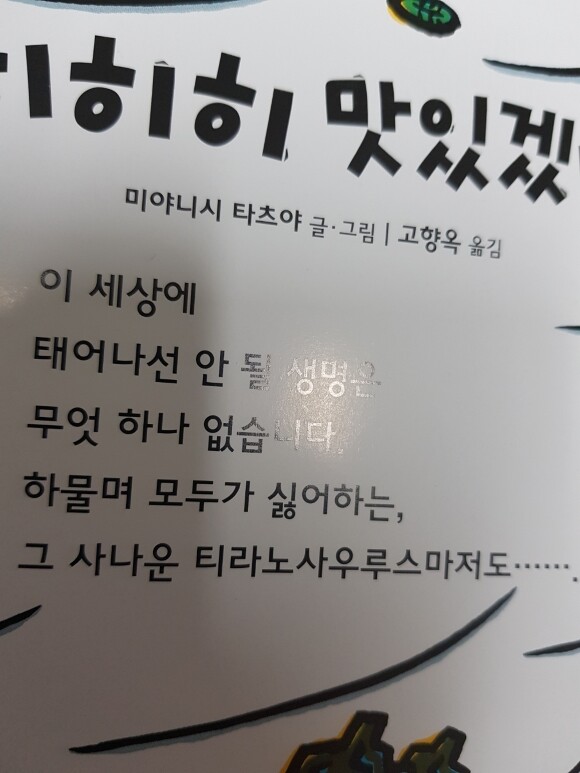 히히히 맛있겠
미야니시 타츠야 글·그림 | 고향옥 옮김
이 세상에
태어나선 안 될 생명은
무엇 하나 없습니다.
하물며 모두가 싫어하는,
그 사나운 티라노사우루스마저도…….